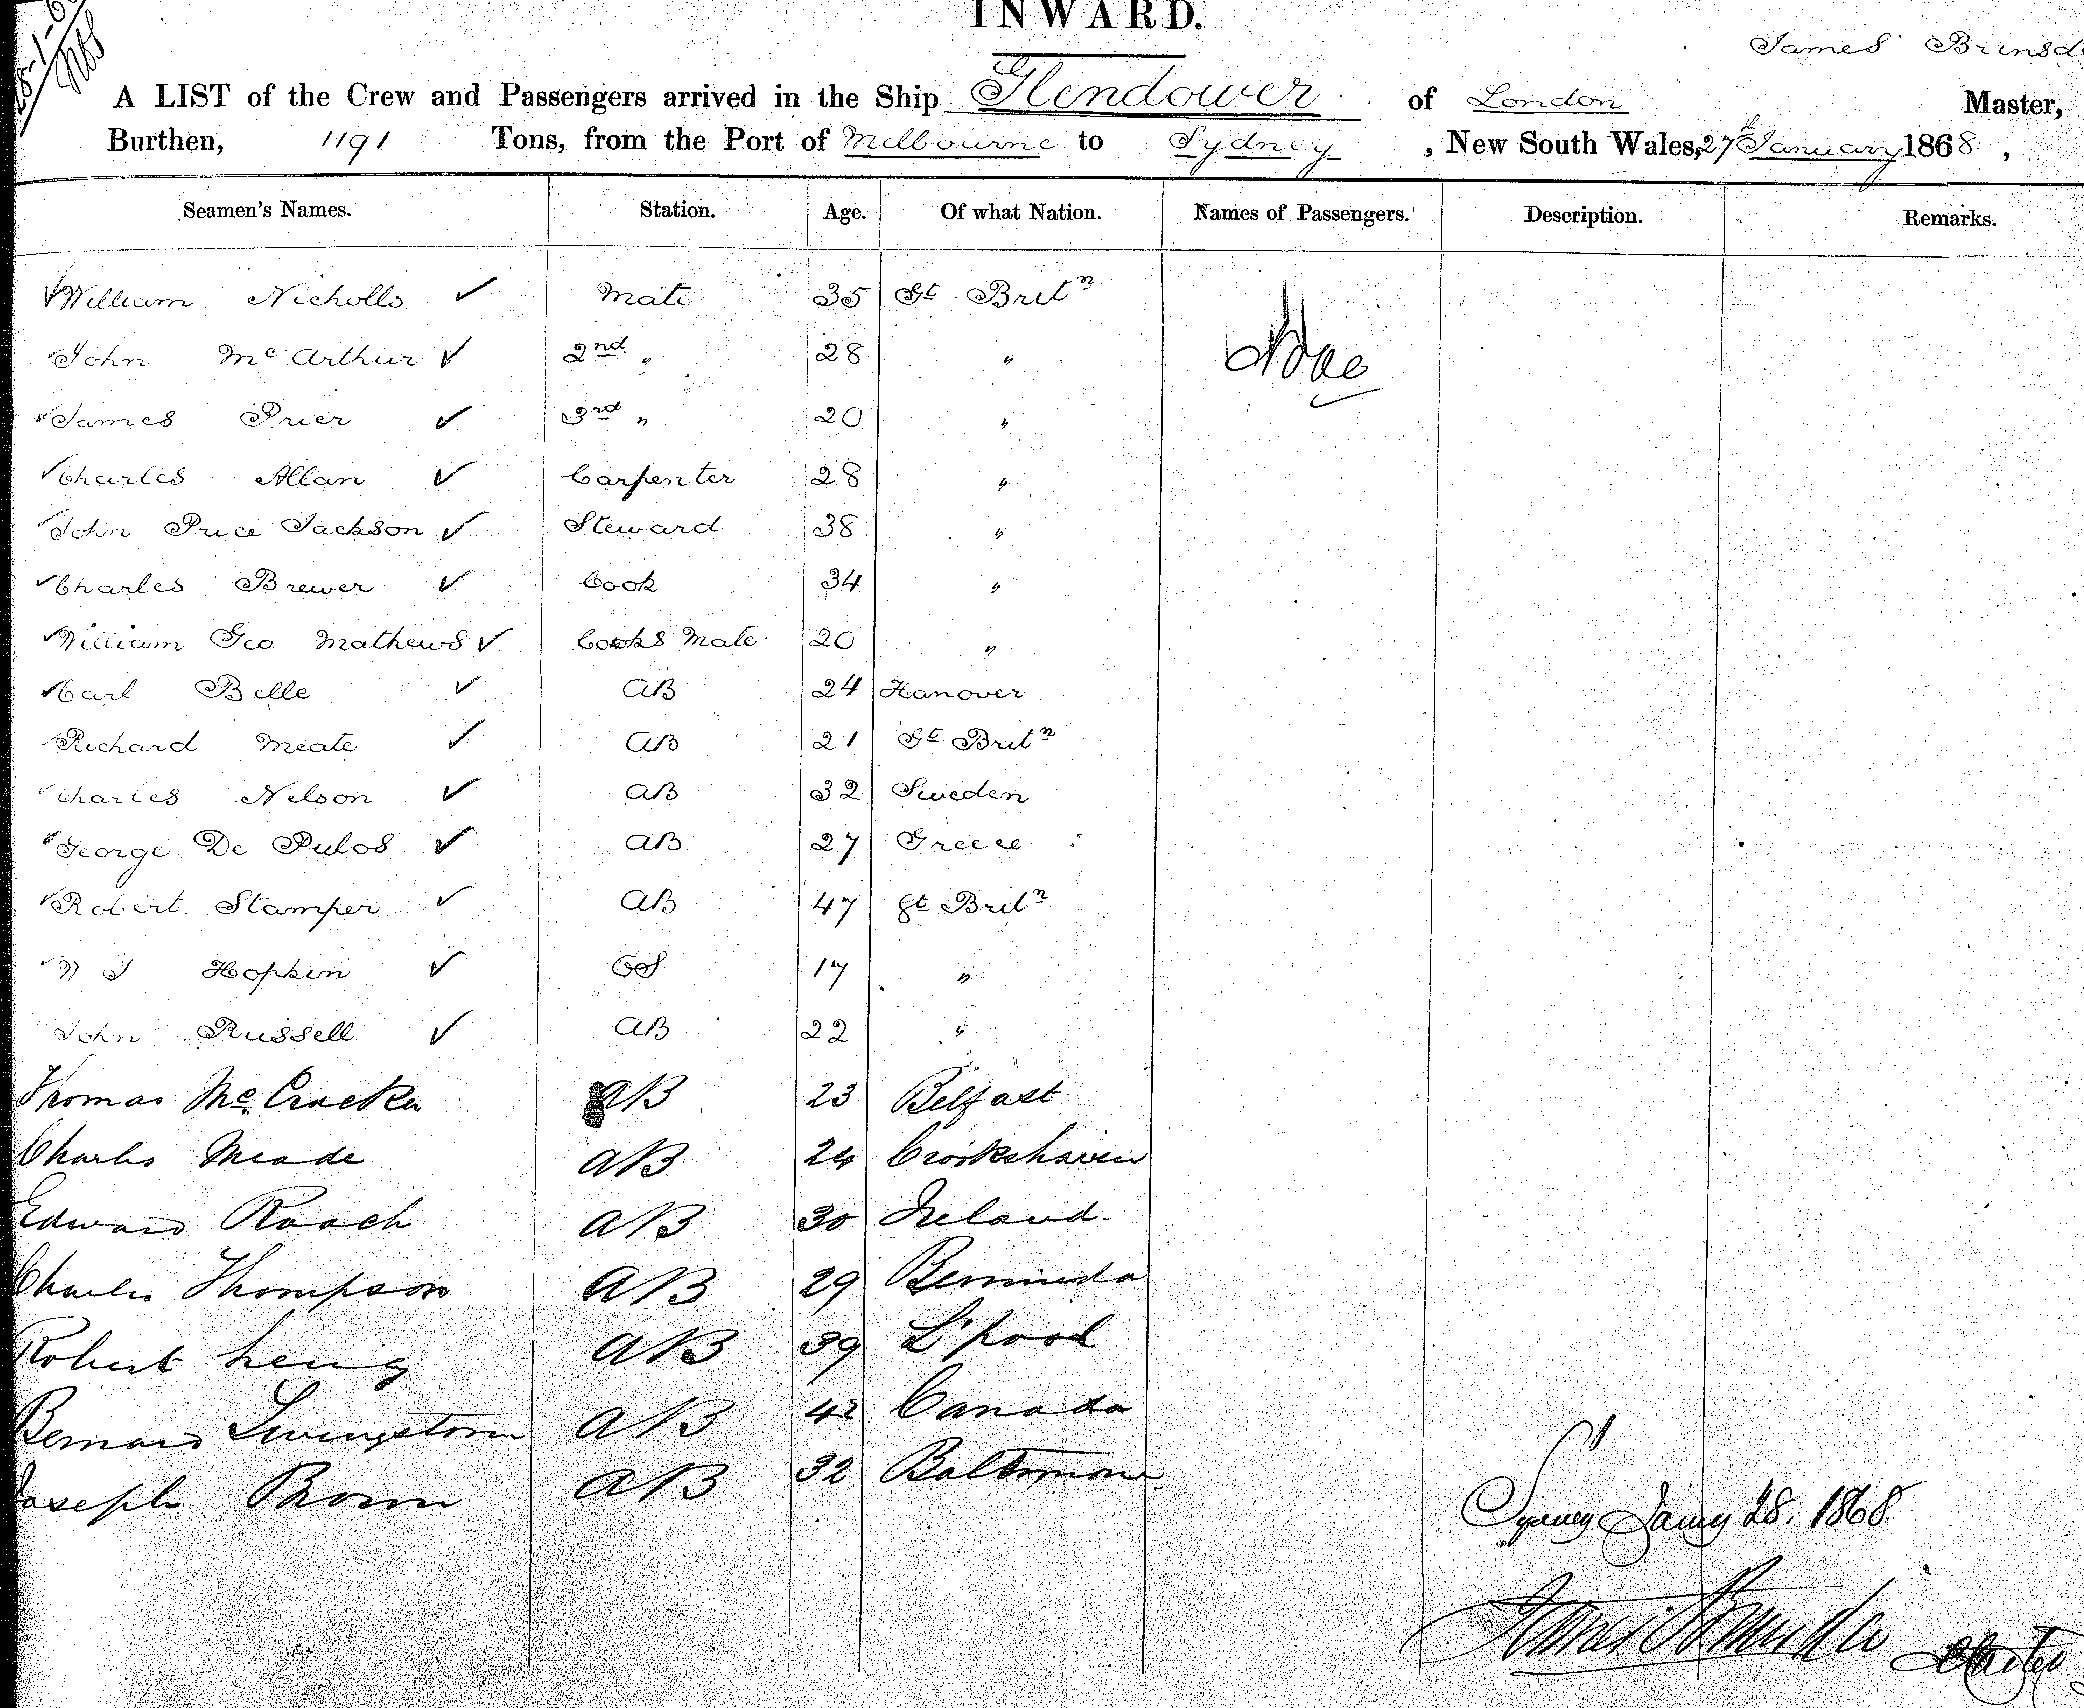 28-1-6
INWARD.
James Brinsd
A LIST of the Crew and Passengers arrived in the Ship Glendower of London Master,
Burthen, 1191 Tons, from the Port of Melbourne to Sydney, New South Wales, 27th January 1868,
Seamen's Names. Station. Age. Of what Nation. Names of Passengers. Description. Remarks.
William Nicholls ✓ Mate 35 Gt Britn
John McArthur ✓ 2nd " 28 "
James Prier ✓ 3rd " 20 "
Charles Allan ✓ Carpenter 28 "
John Price Jackson ✓ Steward 38 "
Charles Brewer ✓ Cook 34 "
William Geo Mathews ✓ Cooks Mate 20 "
Carl Bille ✓ AB 24 Hanover
Richard Meate ✓ AB 21 Gt Britn
Charles Nelson ✓ AB 32 Sweden
George De Pulos ✓ AB 27 Greece
Robert Stamper ✓ AB 47 Gt Britn
Hopkin ✓ OS 17 "
John Russell ✓ AB 22 "
Thomas McCracken AB 23 Belfast
Charles Meade AB 24 Crookshaven
Edward Roach AB 30 Ireland
Charles Thompson AB 29 Bermuda
Robert AB 39 L'pool
Bernard Livingstone AB 42 Canada
Joseph Brown AB 32 Baltimore
Sydney Jany 28. 1868
James